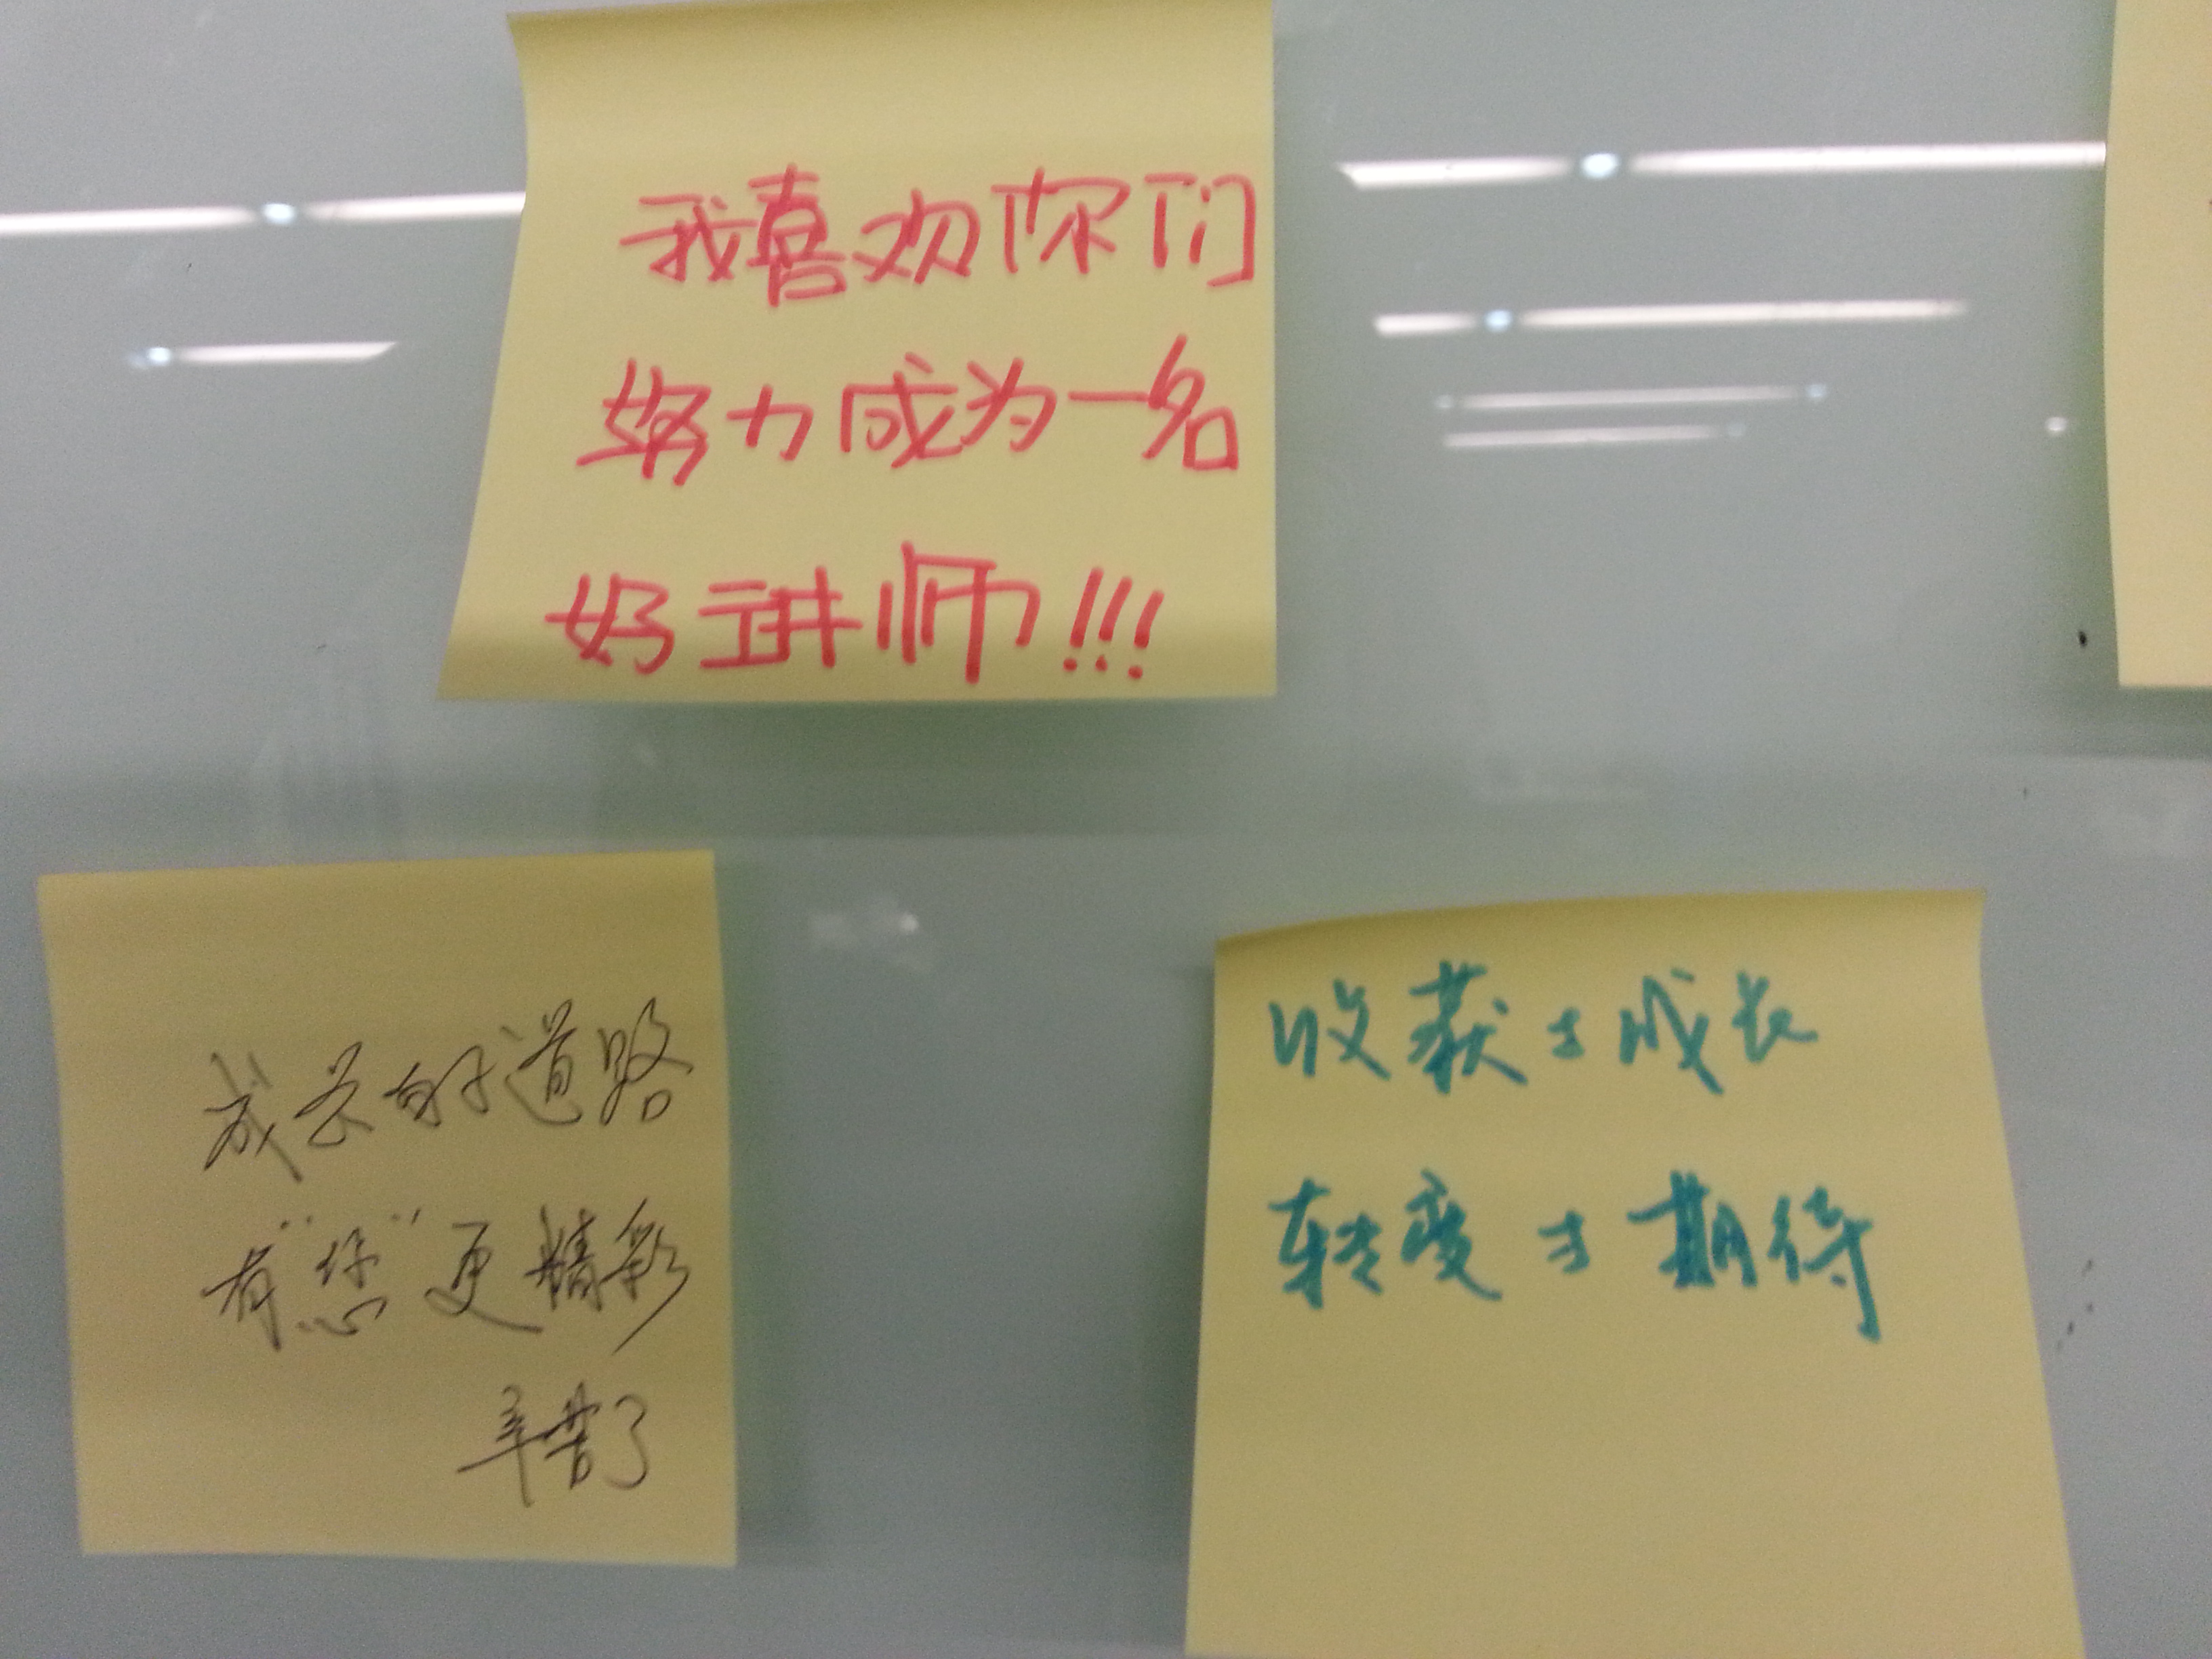 我喜欢你们
努力成为一名
好讲师!!!
成长的道路
有“您”更精彩
辛苦了
收获与成长
转变与期待